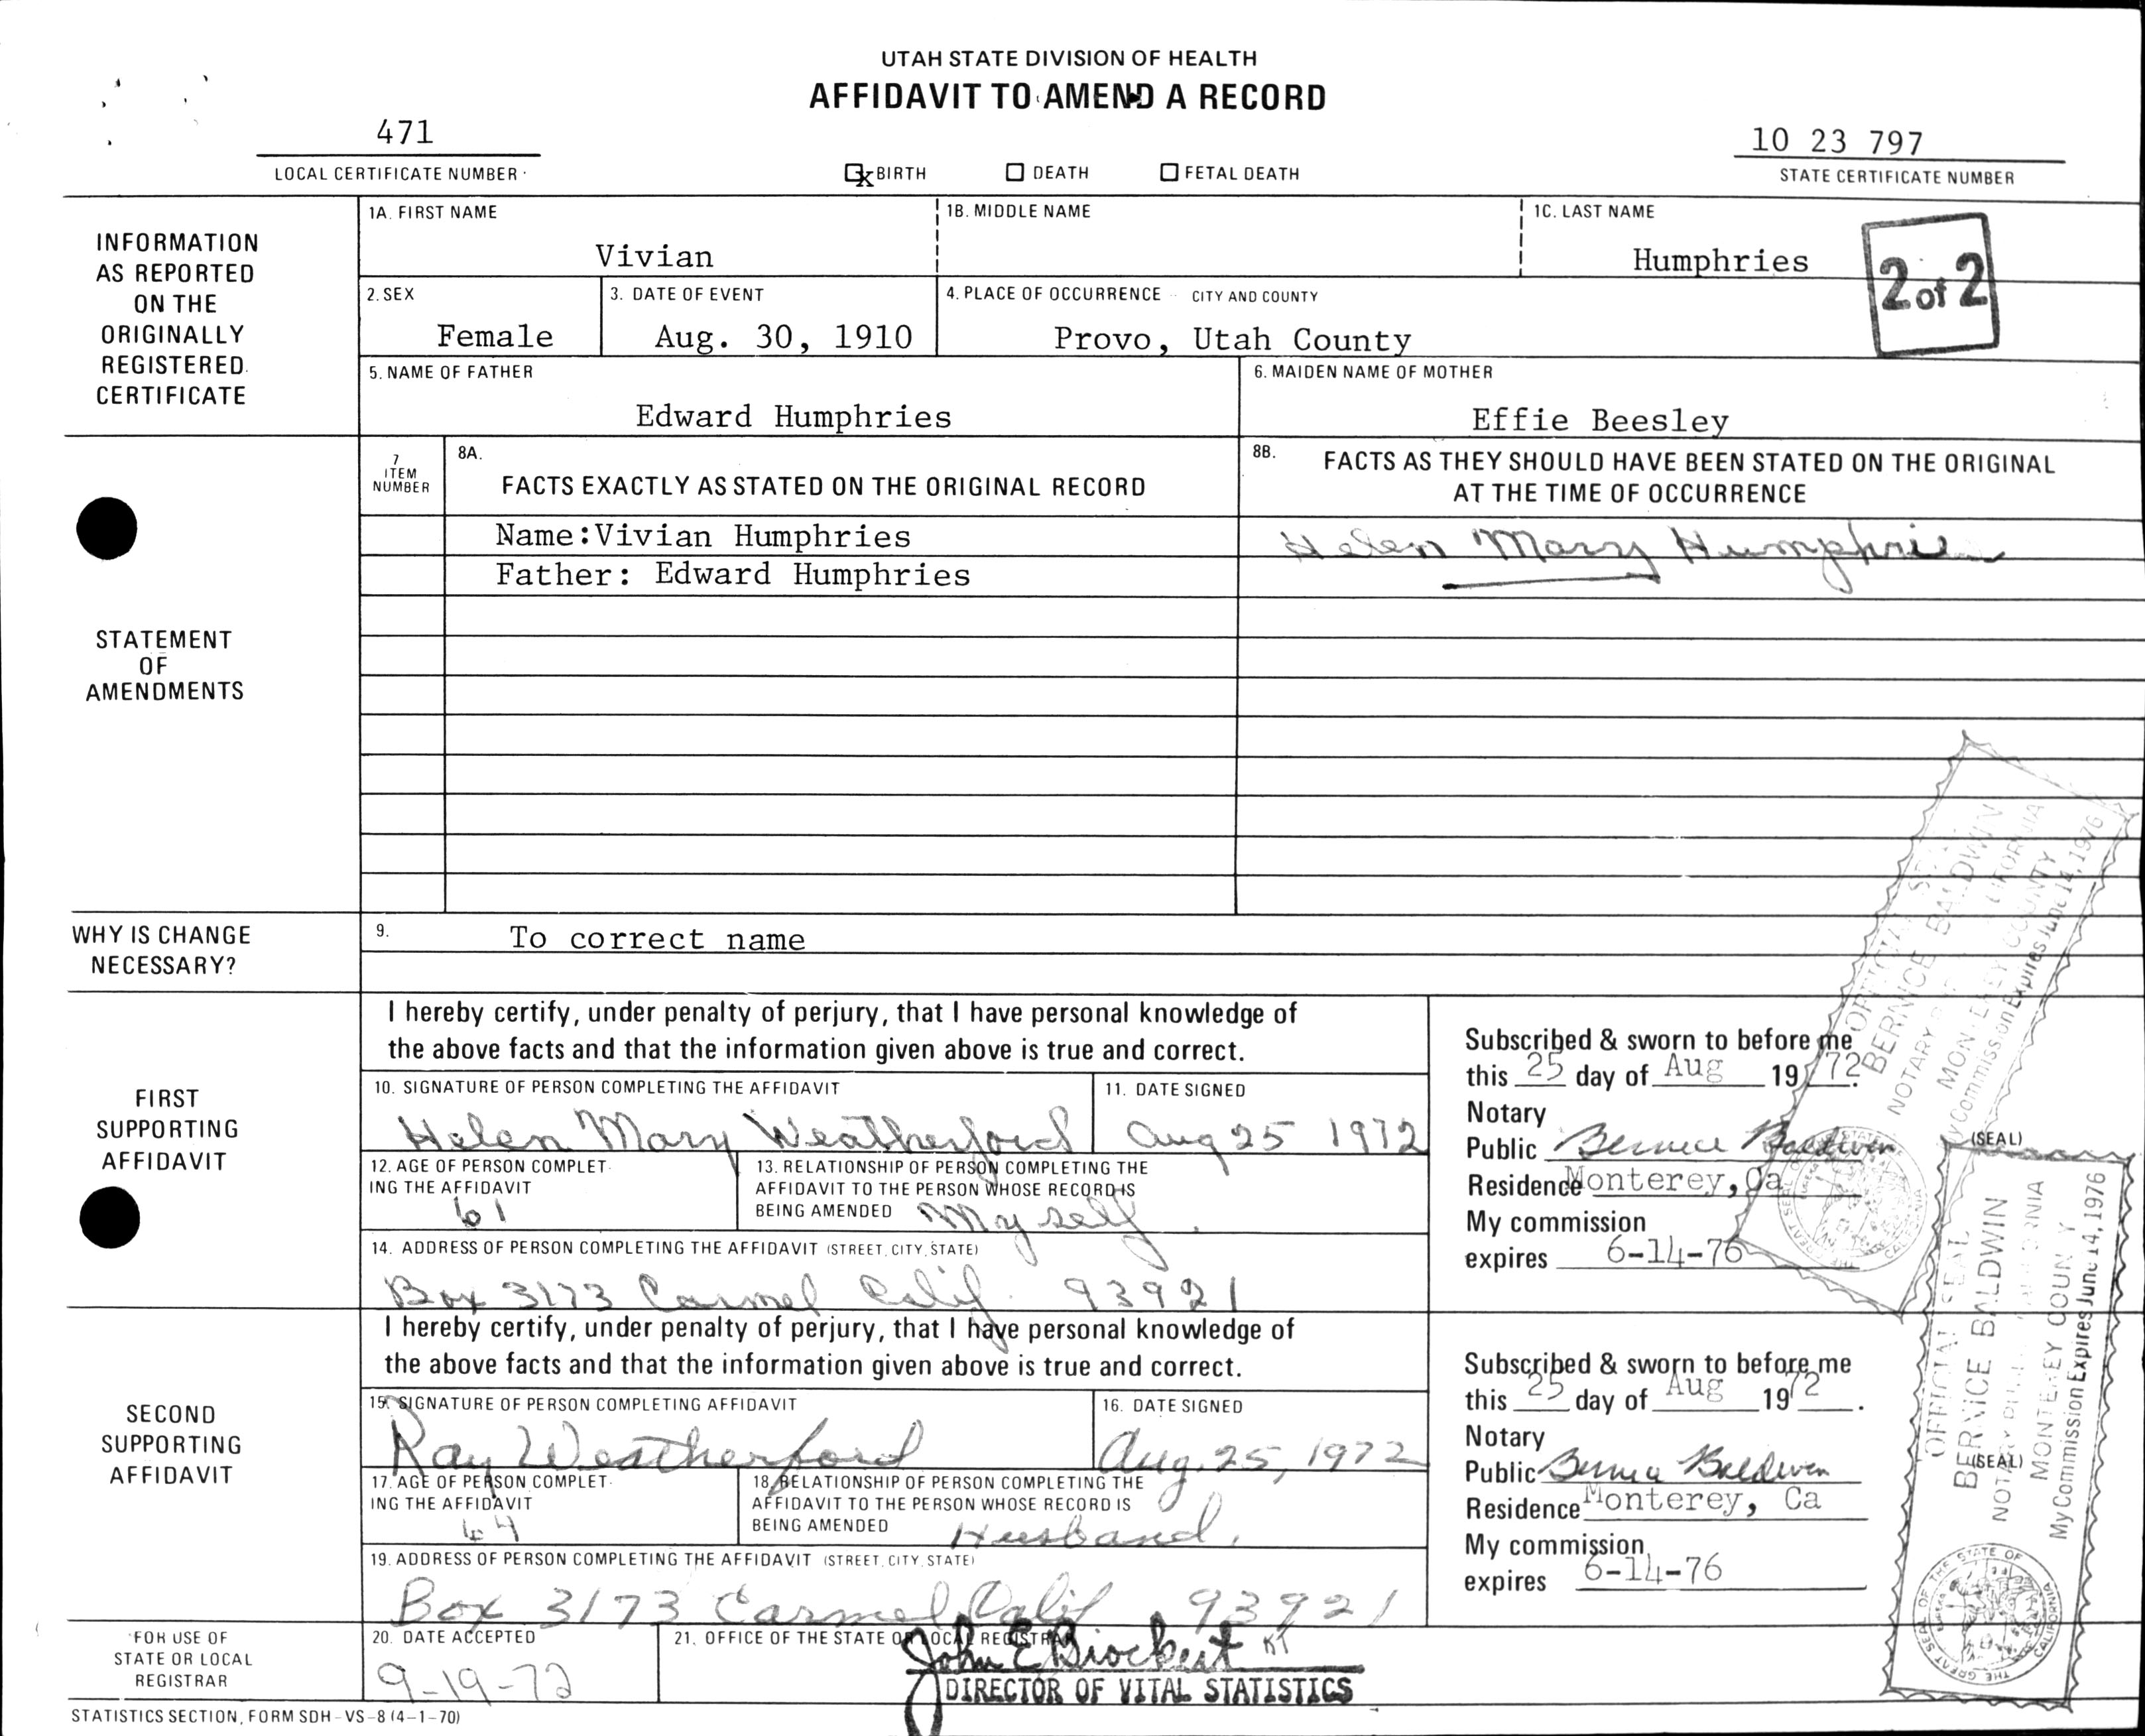 UTAH STATE DIVISION OF HEALTH
AFFIDAVIT TO AMEND A RECORD
471
10 23 797
LOCAL CERTIFICATE NUMBER
x BIRTH DEATH FETAL DEATH
STATE CERTIFICATE NUMBER
INFORMATION
AS REPORTED
ON THE
ORIGINALLY
REGISTERED
CERTIFICATE
1A. FIRST NAME
Vivian
1B. MIDDLE NAME
1C. LAST NAME
Humphries
2 of 2
2. SEX
Female
3. DATE OF EVENT
Aug. 30, 1910
4. PLACE OF OCCURRENCE - CITY AND COUNTY
Provo, Utah County
5. NAME OF FATHER
Edward Humphries
6. MAIDEN NAME OF MOTHER
Effie Beesley
STATEMENT
OF
AMENDMENTS
7
ITEM
NUMBER
8A.
FACTS EXACTLY AS STATED ON THE ORIGINAL RECORD
8B. FACTS AS THEY SHOULD HAVE BEEN STATED ON THE ORIGINAL
AT THE TIME OF OCCURRENCE
Name:Vivian Humphries
Helen Mary Humphries
Father: Edward Humphries
WHY IS CHANGE
NECESSARY?
9. To correct name
FIRST
SUPPORTING
AFFIDAVIT
I hereby certify, under penalty of perjury, that I have personal knowledge of
the above facts and that the information given above is true and correct.
10. SIGNATURE OF PERSON COMPLETING THE AFFIDAVIT
Helen Mary Weatherford
11. DATE SIGNED
Aug 25 1972
12. AGE OF PERSON COMPLET-
ING THE AFFIDAVIT
61
13. RELATIONSHIP OF PERSON COMPLETING THE
AFFIDAVIT TO THE PERSON WHOSE RECORD IS
BEING AMENDED Myself
14. ADDRESS OF PERSON COMPLETING THE AFFIDAVIT (STREET, CITY, STATE)
Box 3173 Carmel Calif. 93921
Subscribed & sworn to before me
this 25 day of Aug 19 72.
Notary
Public Bernice Baldwin
(SEAL)
Residence Monterey, Ca
My commission
expires 6-14-76
OFFICIAL SEAL
BERNICE BALDWIN
NOTARY
MONTEREY COUNTY
My Commission Expires June 14, 1976
SECOND
SUPPORTING
AFFIDAVIT
I hereby certify, under penalty of perjury, that I have personal knowledge of
the above facts and that the information given above is true and correct.
15. SIGNATURE OF PERSON COMPLETING AFFIDAVIT
Ray Weatherford
16. DATE SIGNED
Aug. 25, 1972
17. AGE OF PERSON COMPLET-
ING THE AFFIDAVIT
64
18. RELATIONSHIP OF PERSON COMPLETING THE
AFFIDAVIT TO THE PERSON WHOSE RECORD IS
BEING AMENDED Husband.
19. ADDRESS OF PERSON COMPLETING THE AFFIDAVIT (STREET, CITY, STATE)
Box 3173 Carmel, Calif 93921
Subscribed & sworn to before me
this 25 day of Aug 19 72.
Notary
Public Bernice Baldwin
(SEAL)
Residence Monterey, Ca
My commission
expires 6-14-76
OFFICIAL SEAL
BERNICE BALDWIN
NOTARY PUBLIC CALIFORNIA
MONTEREY COUNTY
My Commission Expires June 14, 1976
THE GREAT SEAL OF THE STATE OF CALIFORNIA
FOR USE OF
STATE OR LOCAL
REGISTRAR
20. DATE ACCEPTED
9-19-72
21. OFFICE OF THE STATE OR LOCAL REGISTRAR
John E Brockert
DIRECTOR OF VITAL STATISTICS
STATISTICS SECTION, FORM SDH-VS-8 (4-1-70)